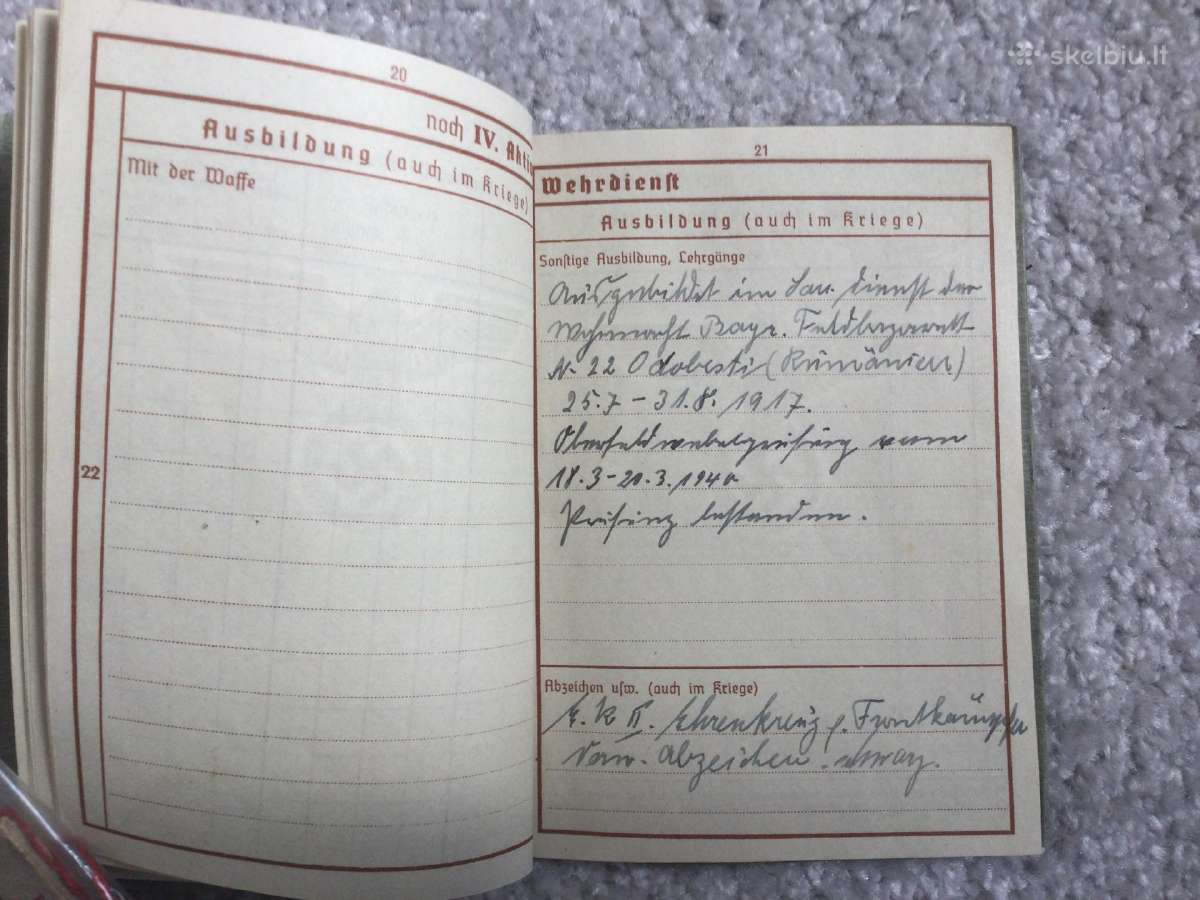 skelbiu.lt
20
noch IV. Akti
Ausbildung (auch im Kriege)
Mit der Waffe
22
21
Wehrdienst
Ausbildung (auch im Kriege)
Sonstige Ausbildung, Lehrgänge
Ausgebildet im San. Dienst der
Wehrmacht Bayr. Feldlazarett
N. 22 Odobesti (Rumänien)
25.7 - 31.8. 1917.
Oberfeldwebelprüfung vom
18.3 - 20.3. 1940
Prüfung bestanden.
Abzeichen usw. (auch im Kriege)
E. K. II. Ehrenkreuz f. Frontkämpfer
Verw. Abzeichen schwarz.